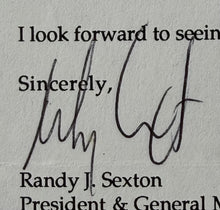 I look forward to seein
Sincerely,
Randy J. Sexton
President & General M